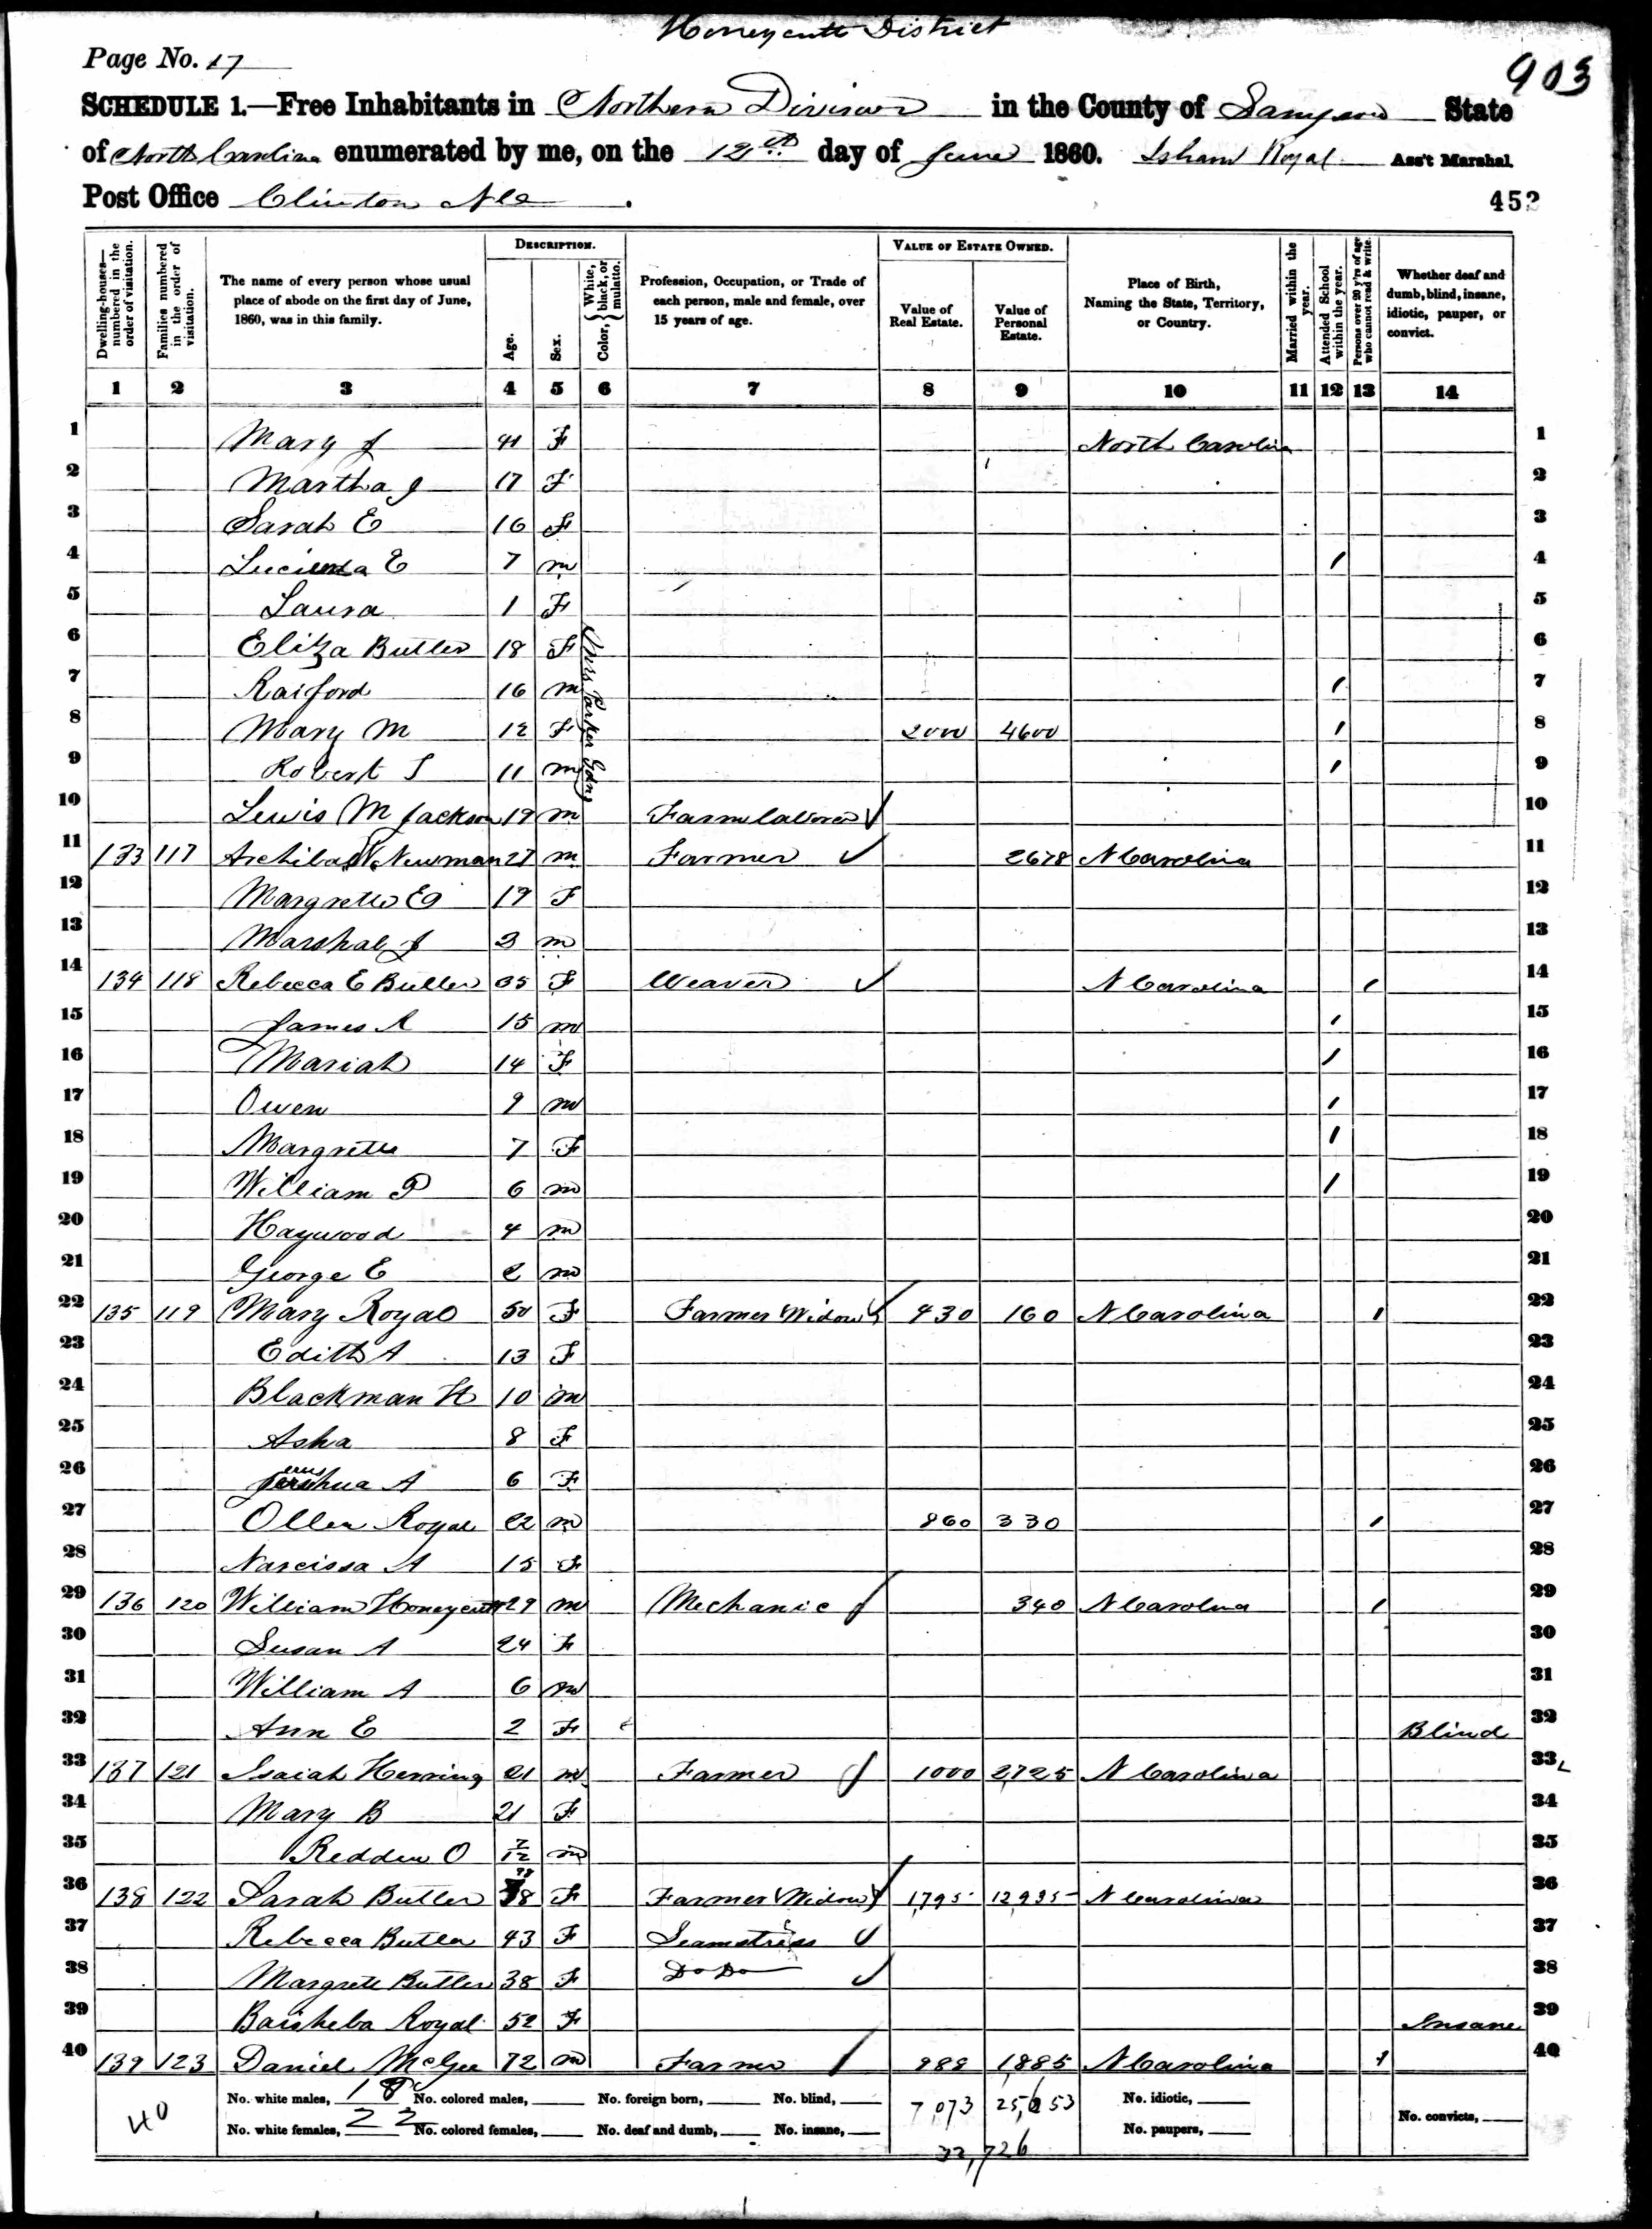 Honeycutt District
Page No. 17
903
SCHEDULE 1.—Free Inhabitants in Northern Division in the County of Sampson State
of North Carolina enumerated by me, on the 12th day of June 1860. Isham Royal Ass't Marshal.
Post Office Clinton N C
452
Dwelling-houses—numbered in the order of visitation.
Families numbered in the order of visitation.
The name of every person whose usual place of abode on the first day of June, 1860, was in this family.
DESCRIPTION.
Age.
Sex.
Color, { White, black, or mulatto.
Profession, Occupation, or Trade of each person, male and female, over 15 years of age.
VALUE OF ESTATE OWNED.
Value of Real Estate.
Value of Personal Estate.
Place of Birth, Naming the State, Territory, or Country.
Married within the year.
Attended School within the year.
Persons over 20 y'rs of age who cannot read & write.
Whether deaf and dumb, blind, insane, idiotic, pauper, or convict.
1 2 3 4 5 6 7 8 9 10 11 12 13 14
1 Mary J 41 F North Carolina 1
2 Martha J 17 F 2
3 Sarah E 16 F 3
4 E 7 m / 4
5 Laura 1 F 5
6 Eliza Butler 18 F 6
7 Raiford 16 m / 7
8 Mary M 12 F 2000 4600 / 8
9 Robert S 11 m / 9
10 Lewis M Jackson 19 m Farm laborer 10
11 133 117 Archibald Newman 27 m Farmer 2678 N Carolina 11
12 Margrette E 19 F 12
13 Marshal J 3 m 13
14 134 118 Rebecca E Butler 35 F Weaver N Carolina / 14
15 James R 15 m / 15
16 Mariah 14 F / 16
17 Owen 9 m / 17
18 Margrette 7 F / 18
19 William P 6 m / 19
20 Haywood 4 m 20
21 George E 2 m 21
22 135 119 Mary Royal 50 F Farmer Widow 430 160 N Carolina / 22
23 Edith A 13 F 23
24 Blackman H 10 m 24
25 Asha 8 F 25
26 A 6 F 26
27 Ollen Royal 22 m 860 330 / 27
28 Narcissa A 15 F 28
29 136 120 William Honeycutt 29 m Mechanic 340 N Carolina / 29
30 Susan A 24 F 30
31 William A 6 m 31
32 Ann E 2 F Blind 32
33 137 121 Isaiah Herring 21 m Farmer 1000 2,725 N Carolina 33
34 Mary B 21 F 34
35 Redden O 2/12 m 35
36 138 122 Sarah Butler 78 F Farmer Widow 1,795 12,935 N Carolina 36
37 Rebecca Butler 43 F Seamstress 37
38 Margrett Butler 38 F Do Do 38
39 Baisheba Royal 52 F Insane 39
40 139 123 Daniel McGee 72 m Farmer 988 1,885 N Carolina 1 40
Mrs Parker Gdn
40
No. white males, 18 No. colored males, No. foreign born, No. blind, 7,073 25,653 No. idiotic,
No. white females, 22 No. colored females, No. deaf and dumb, No. insane, No. paupers, No. convicts,
32,726